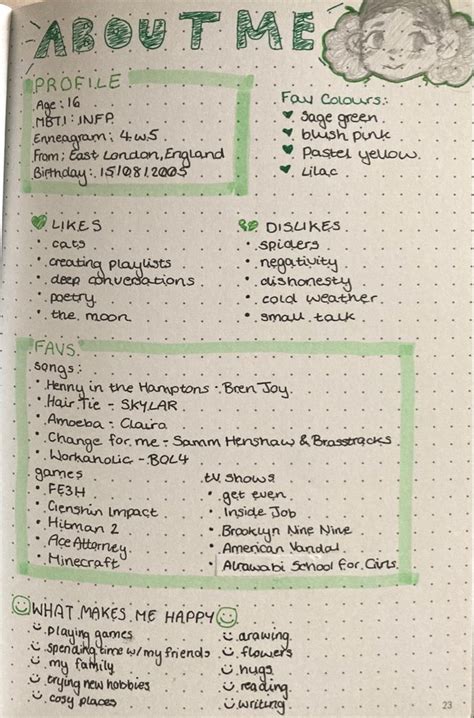 ABOUT ME
PROFILE
Age: 16
MBTI: INFP
Enneagram: 4w5
From: East London, England
Birthday: 15/08/2005
Fav Colours:
sage green
blush pink
Pastel yellow
Lilac
LIKES
• cats
• creating playlists
• deep conversations
• poetry
• the moon
DISLIKES
• spiders
• negativity
• dishonesty
• cold weather
• small talk
FAVS
songs:
• Henny in the Hamptons - Bren Joy
• Hair Tie - SKYLAR
• Amoeba - Clairo
• Change for me - Samm Henshaw & Brasstracks
• Workaholic - BOL4
games
• FE3H
• Genshin Impact
• Hitman 2
• Ace Attorney
• Minecraft
t.v. shows
• get even
• Inside Job
• Brooklyn Nine Nine
• American Vandal
• Alrawabi School for Girls
WHAT MAKES ME HAPPY
playing games
spending time w/ my friends
my family
trying new hobbies
cosy places
drawing
flowers
hugs
reading
writing
23